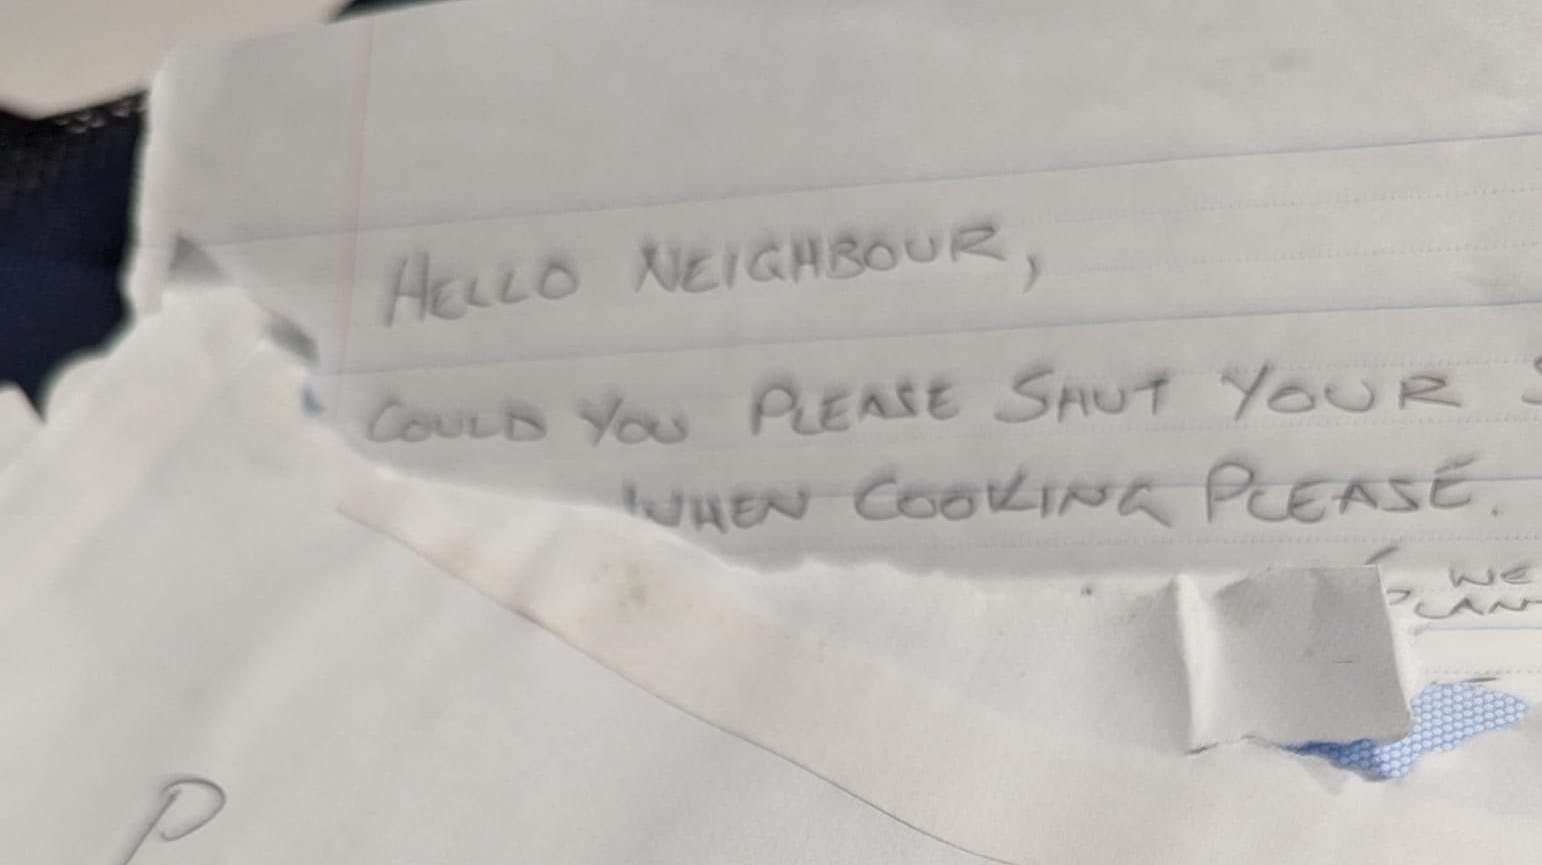 HELLO NEIGHBOUR,
COULD YOU PLEASE SHUT YOUR
WHEN COOKING PLEASE.
WE
P